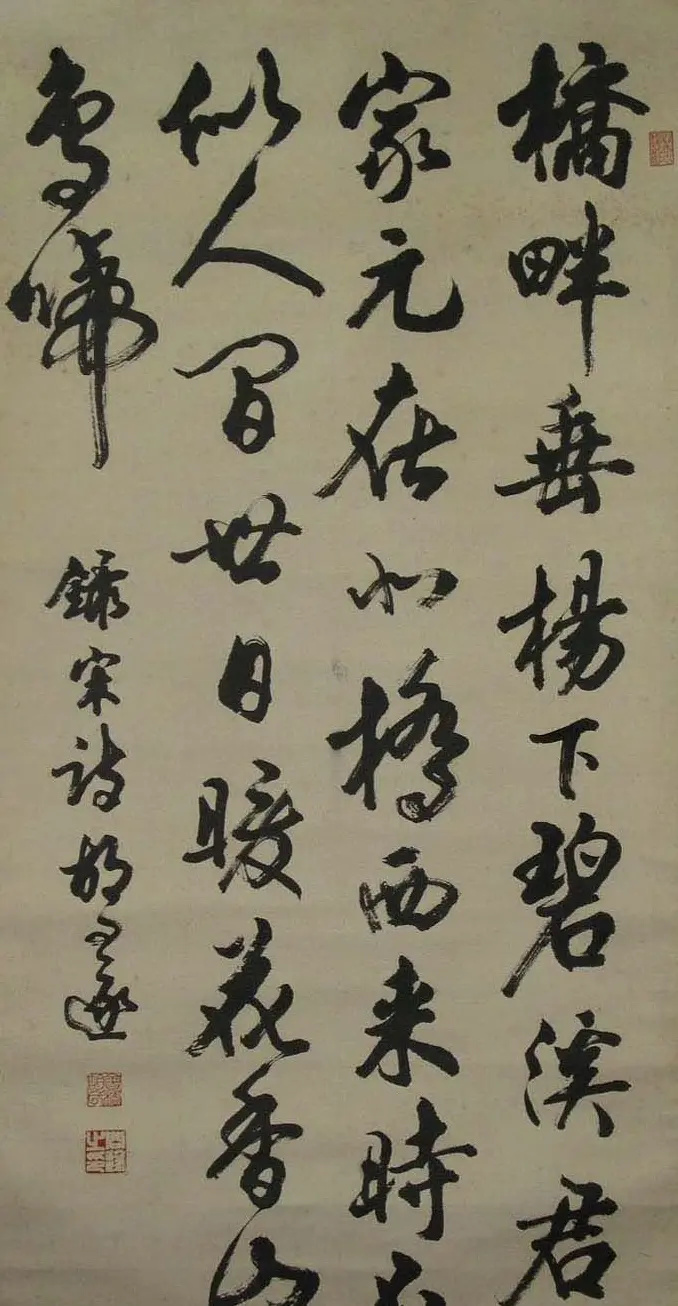 橋畔垂楊下碧溪君
家元在北橋西来時不
似人間世日暖花香山
鳥啼
錄宋詩